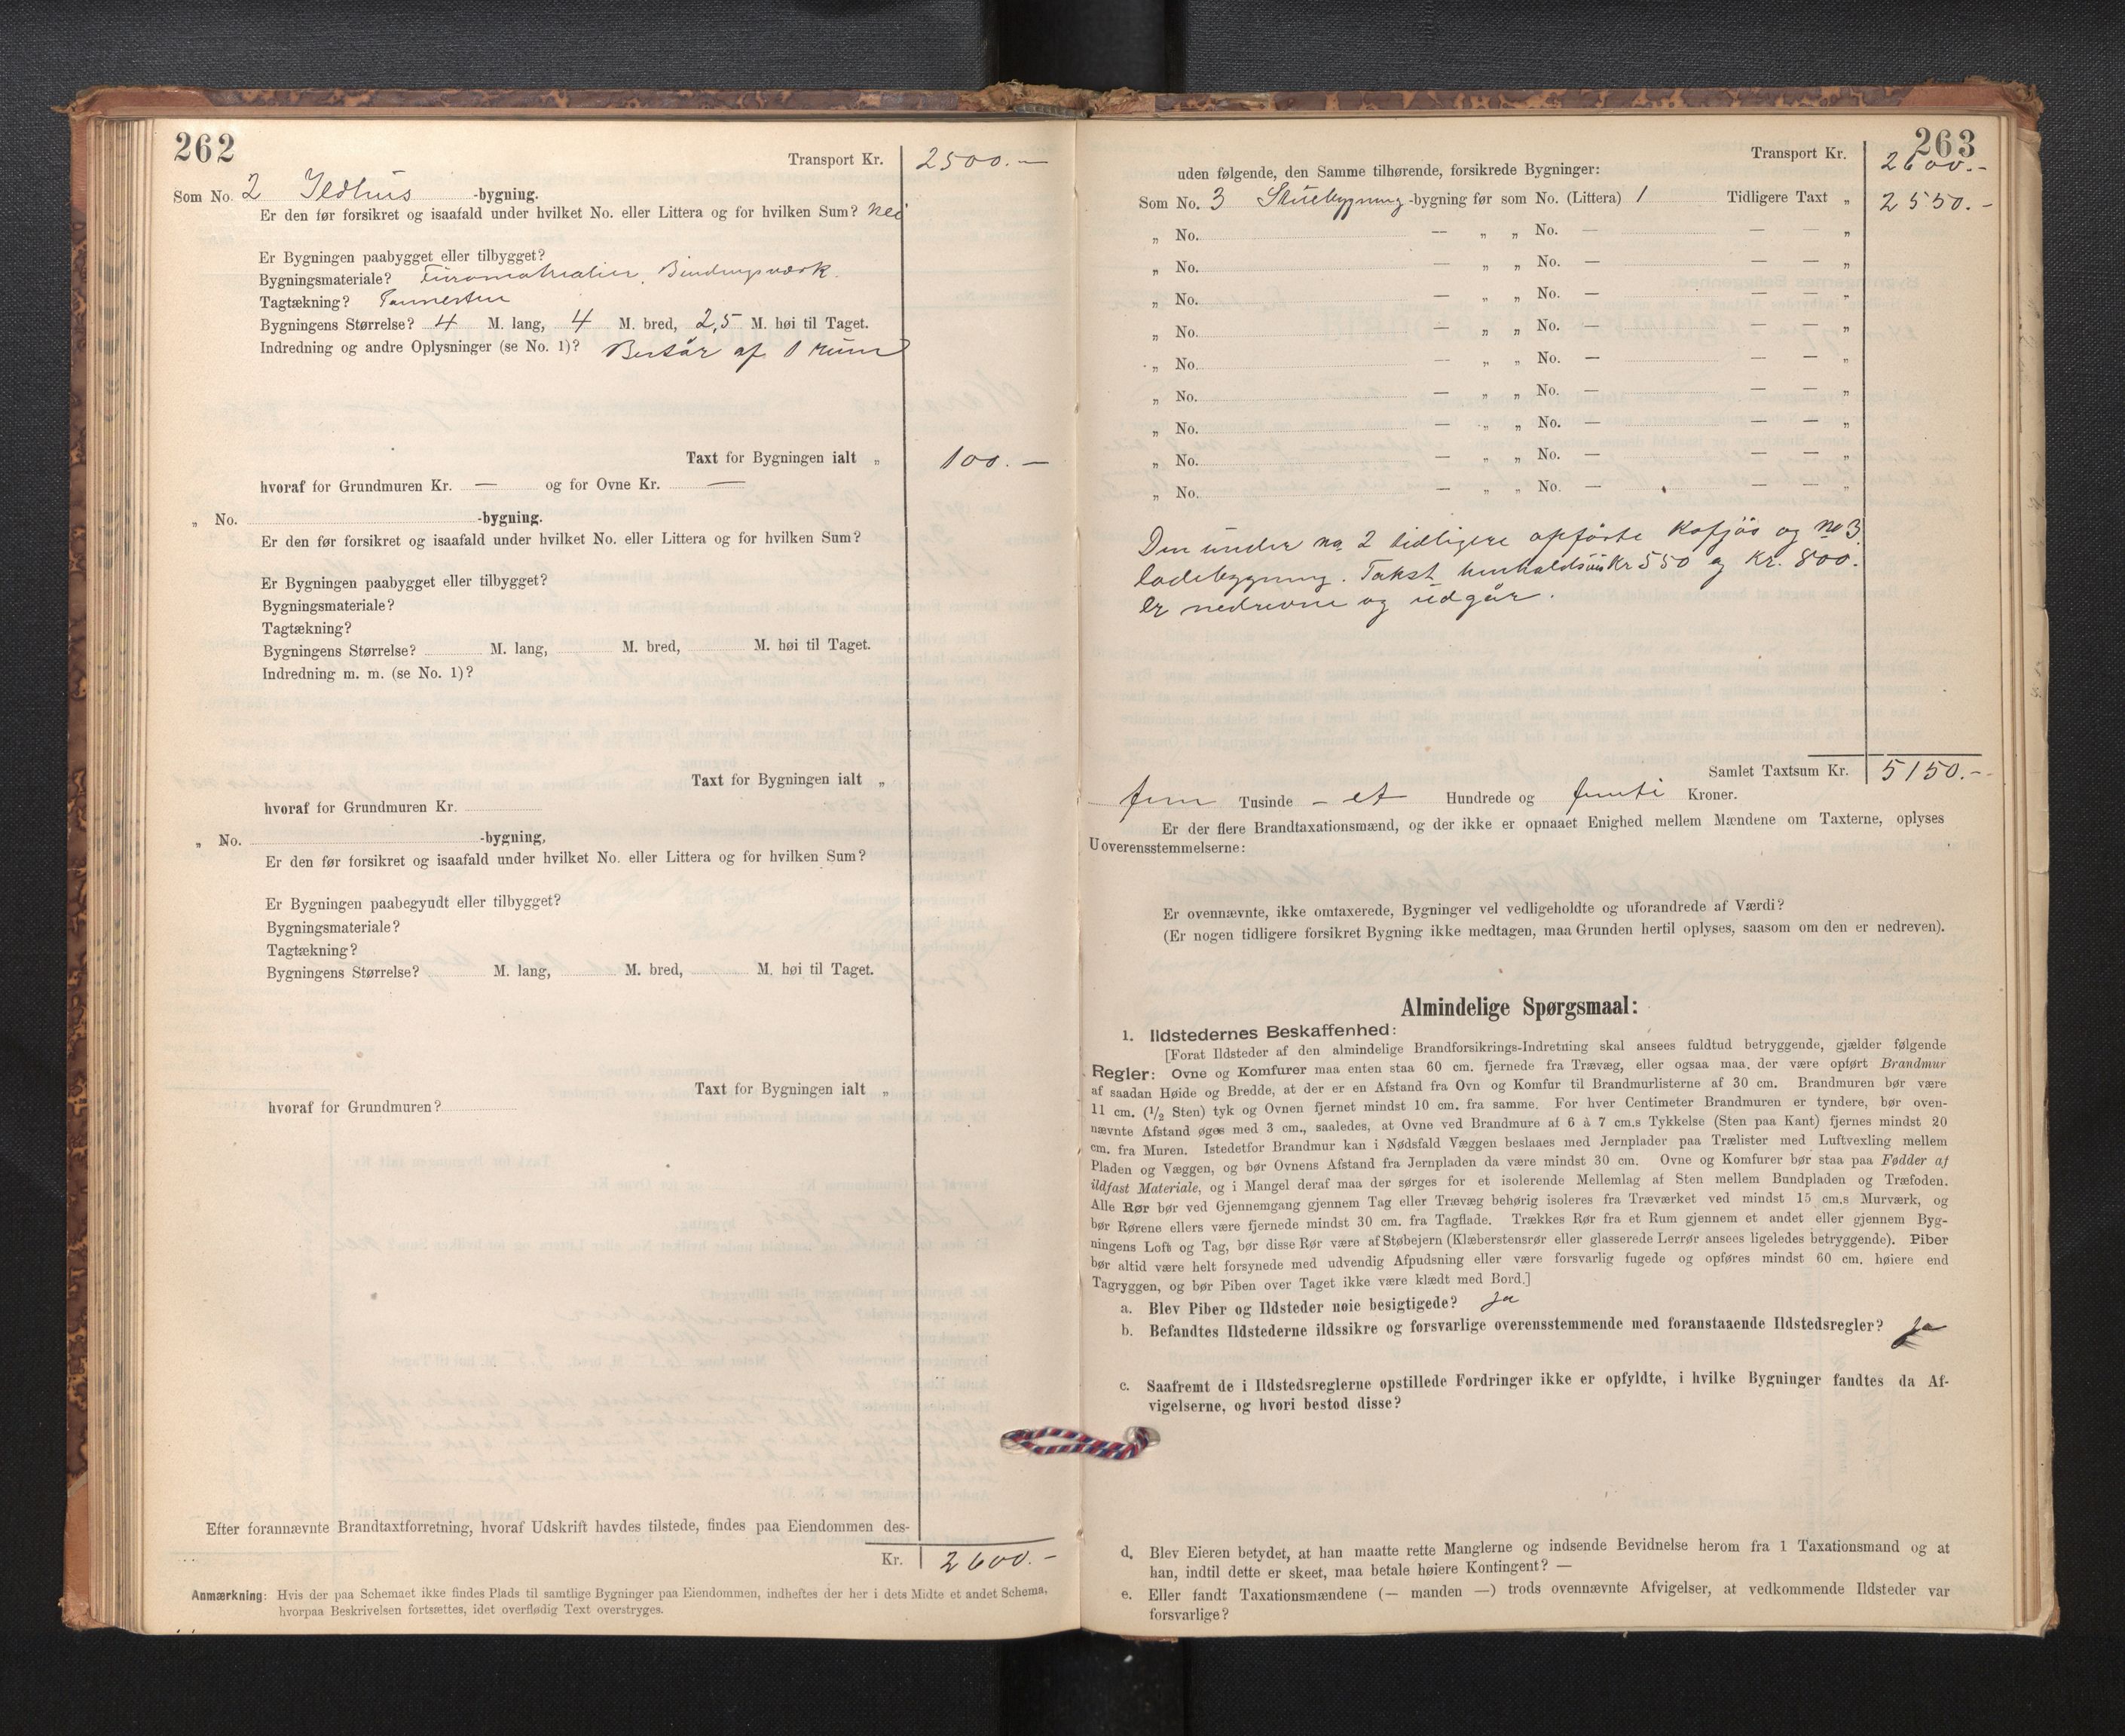 262
Transport Kr. 2500.—
Som No. 2 Ildhus -bygning.
Er den før forsikret og isaafald under hvilket No. eller Littera og for hvilken Sum? nei
Er Bygningen paabygget eller tilbygget?
Bygningsmateriale? Furumatrialier, Bindingsværk.
Tagtækning? Pannesten
Bygningens Størrelse? 4 M. lang, 4 M. bred, 2,5 M. høi til Taget.
Indredning og andre Oplysninger (se No. 1)? Består af 1 rum
Taxt for Bygningen ialt „ 100.—
hvoraf for Grundmuren Kr. — og for Ovne Kr. —
„ No. -bygning.
Er den før forsikret og isaafald under hvilket No. eller Littera og for hvilken Sum?
Er Bygningen paabygget eller tilbygget?
Bygningsmateriale?
Tagtækning?
Bygningens Størrelse? M. lang, M. bred, M. høi til Taget.
Indredning m. m. (se No. 1)?
Taxt for Bygningen ialt „
hvoraf for Grundmuren Kr.
„ No. -bygning,
Er den før forsikret og isaafald under hvilket No. eller Littera og for hvilken Sum?
Er Bygningen paabegyndt eller tilbygget?
Bygningsmateriale?
Tagtækning?
Bygningens Størrelse? M. lang, M. bred, M. høi til Taget.
Taxt for Bygningen ialt „
hvoraf for Grundmuren?
Efter forannævnte Brandtaxtforretning, hvoraf Udskrift havdes tilstede, findes paa Eiendommen des-
Kr. 2600.—
Anmærkning: Hvis der paa Schemaet ikke findes Plads til samtlige Bygninger paa Eiendommen, indheftes der her i dets Midte et andet Schema,
hvorpaa Beskrivelsen fortsættes, idet overflødig Text overstryges.
263
Transport Kr. 2600.—
uden følgende, den Samme tilhørende, forsikrede Bygninger:
Som No. 3 Stuebygning -bygning før som No. (Littera) 1 Tidligere Taxt „ 2550.—
„ No. — „ „ No. — — — „
„ No. — „ „ No. — — — „
„ No. — „ „ No. — — — „
„ No. — „ „ No. — — — „
„ No. — „ „ No. — — — „
„ No. — „ „ No. — — — „
„ No. — „ „ No. — — — „
„ No. — „ „ No. — — — „
„ No. — „ „ No. — — — „
Den under no 2 tidligere opførte Kofjøs og no 3
ladebygning. Takst henholdsvis Kr 550 og Kr. 800.
er nedrevne og udgår.
Samlet Taxtsum Kr. 5150.—
— fem Tusinde — et Hundrede og femti Kroner.
Er der flere Brandtaxationsmænd, og der ikke er opnaaet Enighed mellem Mændene om Taxterne, oplyses
Uoverensstemmelserne:
Er ovennævnte, ikke omtaxerede, Bygninger vel vedligeholdte og uforandrede af Værdi?
(Er nogen tidligere forsikret Bygning ikke medtagen, maa Grunden hertil oplyses, saasom om den er nedreven).
Almindelige Spørgsmaal:
1. Ildstedernes Beskaffenhed:
[Forat Ildsteder af den almindelige Brandforsikrings-Indretning skal ansees fuldtud betryggende, gjælder følgende
Regler: Ovne og Komfurer maa enten staa 60 cm. fjernede fra Trævæg, eller ogsaa maa. der være opført Brandmur
af saadan Høide og Bredde, at der er en Afstand fra Ovn og Komfur til Brandmurlisterne af 30 cm. Brandmuren bør være
11 cm. (1/2 Sten) tyk og Ovnen fjernet mindst 10 cm. fra samme. For hver Centimeter Brandmuren er tyndere, bør oven-
nævnte Afstand øges med 3 cm., saaledes, at Ovne ved Brandmure af 6 à 7 cm.s Tykkelse (Sten paa Kant) fjernes mindst 20
cm. fra Muren. Istedetfor Brandmur kan i Nødsfald Væggen beslaaes med Jernplader paa Trælister med Luftvexling mellem
Pladen og Væggen, og bør Ovnens Afstand fra Jernpladen da være mindst 30 cm. Ovne og Komfurer bør staa paa Fødder af
ildfast Materiale, og i Mangel deraf maa der sørges for et isolerende Mellemlag af Sten mellem Bundpladen og Træfoden.
Alle Rør bør ved Gjennemgang gjennem Tag eller Trævæg behørig isoleres fra Træværket ved mindst 15 cm.s Murværk, og
bør Rørene ellers være fjernede mindst 30 cm. fra Tagflade. Trækkes Rør fra et Rum gjennem et andet eller gjennem Byg-
ningens Loft og Tag, bør disse Rør være af Støbejern (Klæberstensrør eller glasserede Lerrør ansees ligeledes betryggende). Piber
bør altid være helt forsynede med udvendig Afpudsning eller være forsvarlig fugede og opføres mindst 60 cm. høiere end
Tagryggen, og bør Piben over Taget ikke være klædt med Bord.]
a. Blev Piber og Ildsteder nøie besigtigede? ja
b. Befandtes Ildstederne ildssikre og forsvarlige overensstemmende med foranstaaende Ildstedsregler? ja
c. Saafremt de i Ildstedsreglerne opstillede Fordringer ikke er opfyldte, i hvilke Bygninger fandtes da Af-
vigelserne, og hvori bestod disse?
d. Blev Eieren betydet, at han maatte rette Manglerne og indsende Bevidnelse herom fra 1 Taxationsmand og at
han, indtil dette er skeet, maa betale høiere Kontingent? —
e. Eller fandt Taxationsmændene (— manden —) trods ovennævnte Afvigelser, at vedkommende Ildsteder var
forsvarlige?